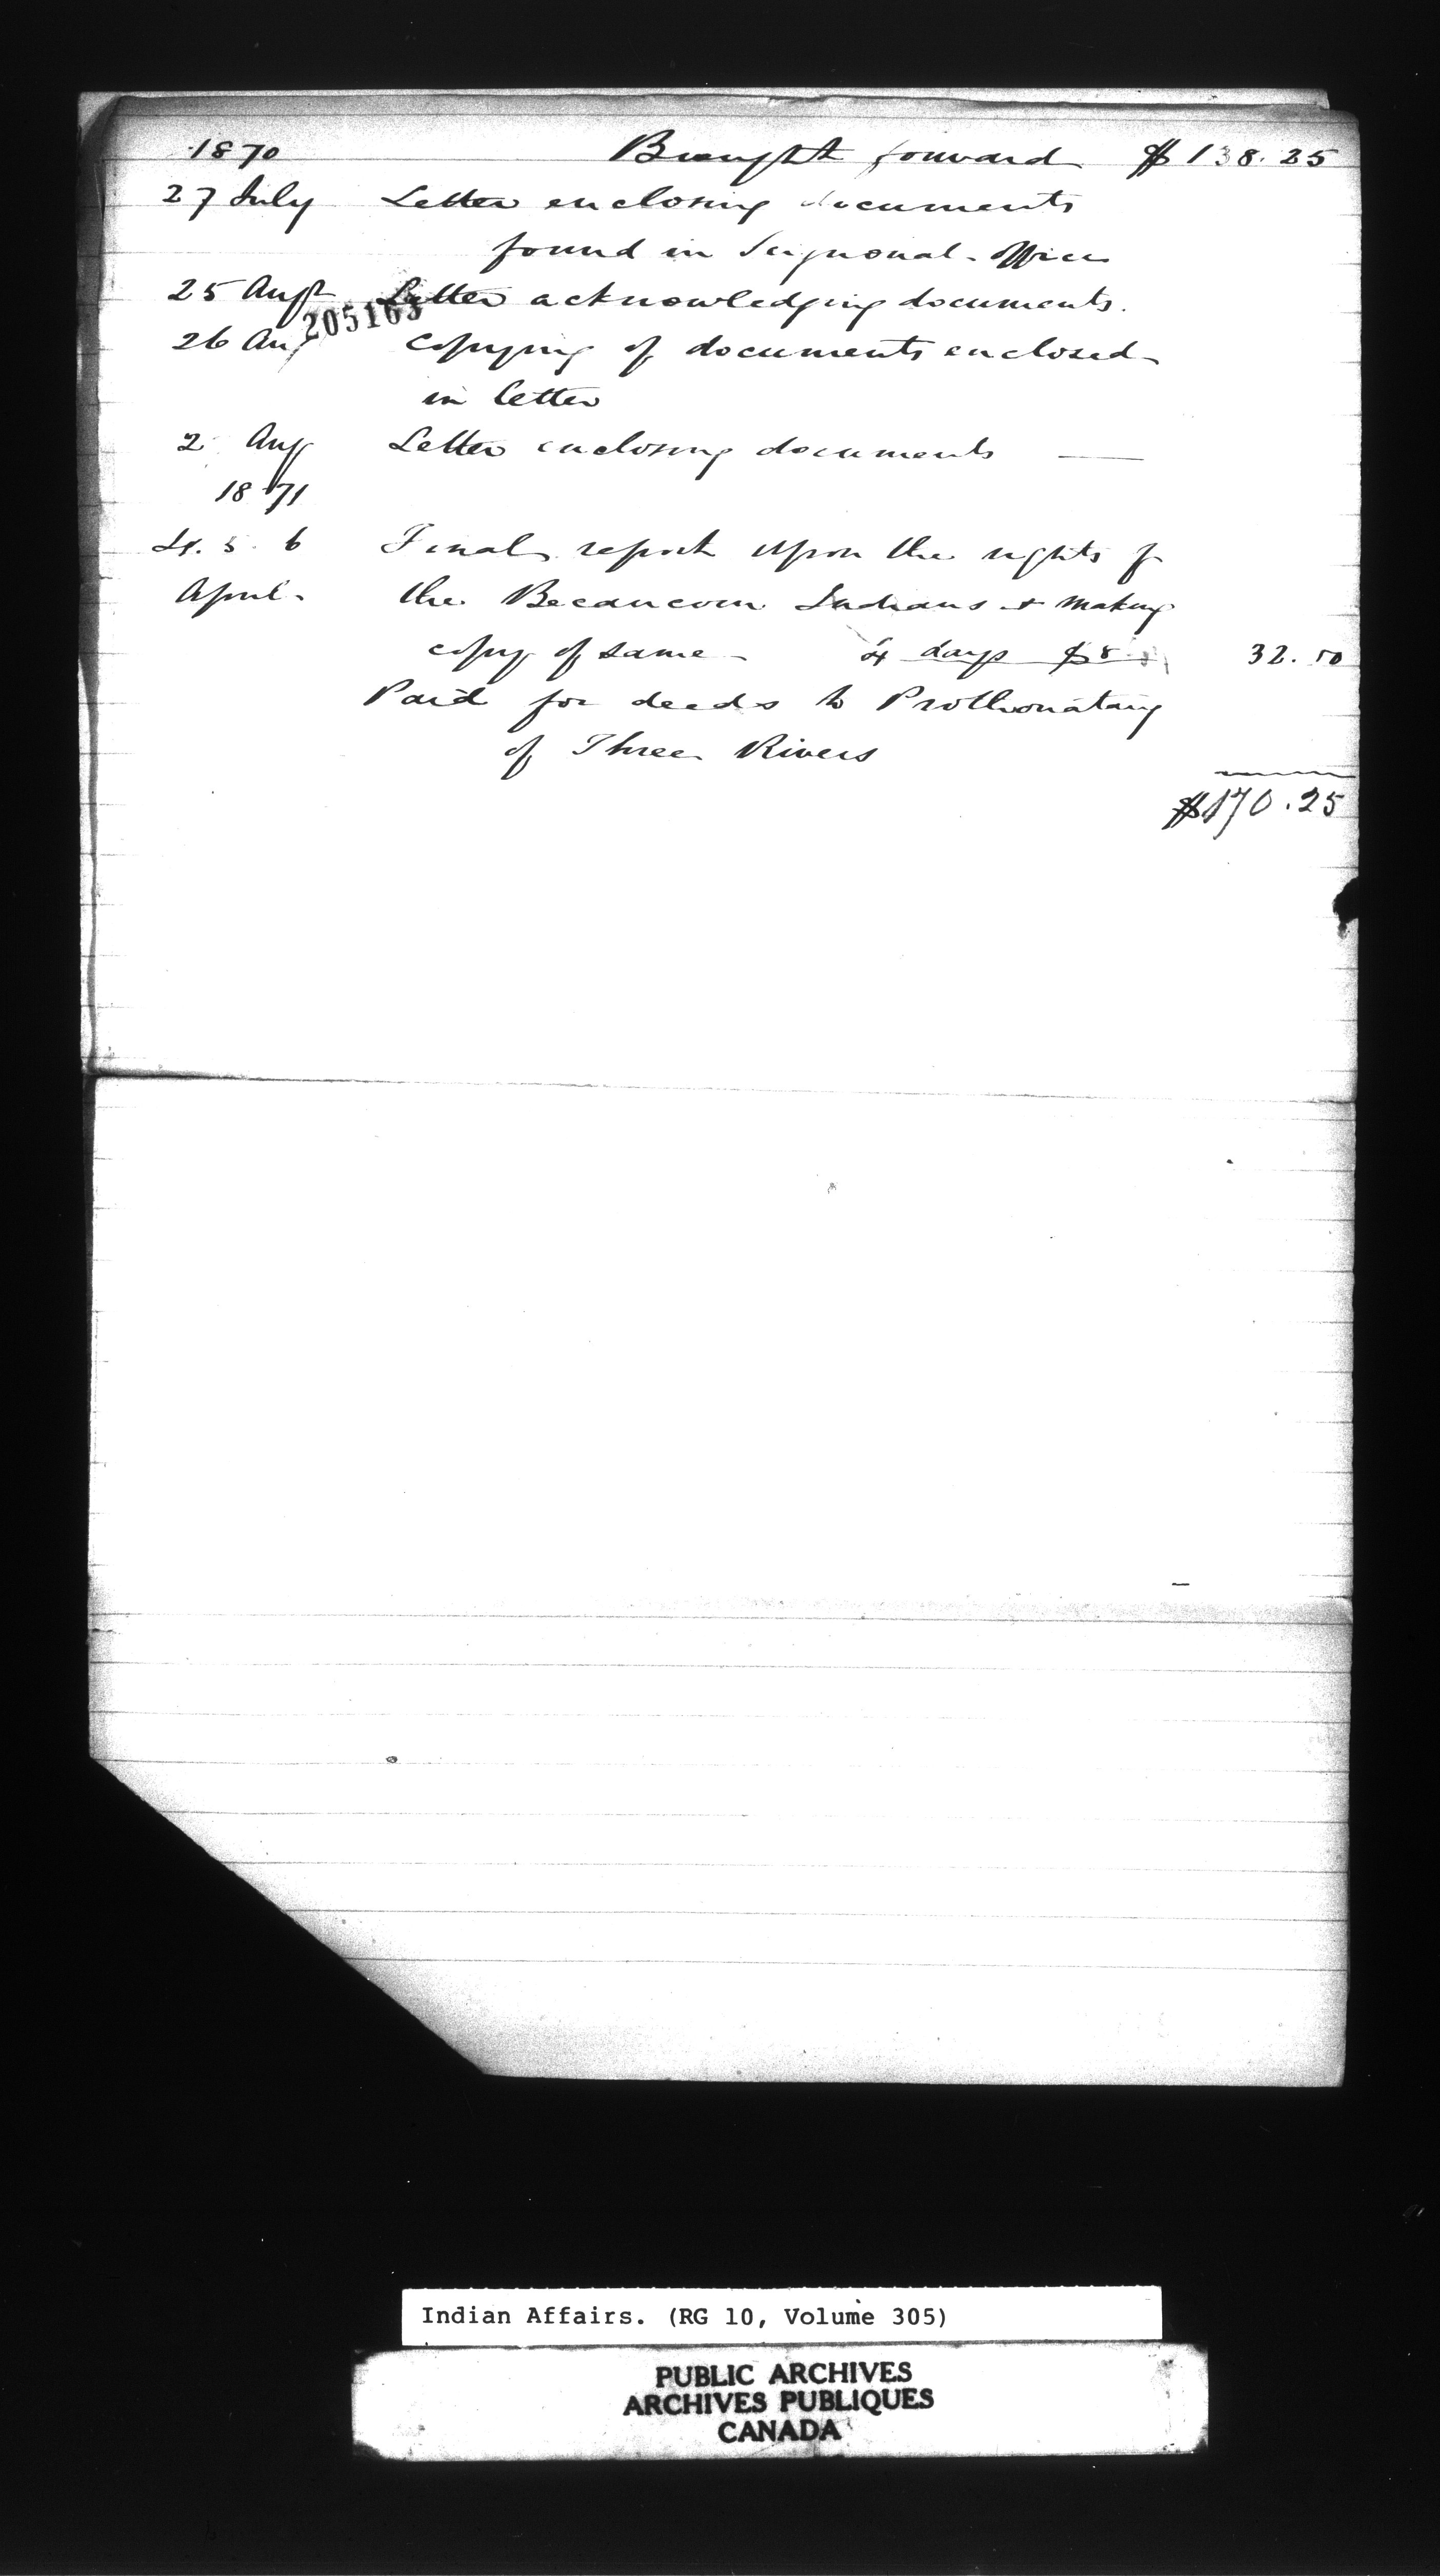 1870 Brought forward $138.25
27 July Letter enclosing documents
found in Seignorial Office
25 Augt Letter acknowledging documents.
205163
26 Aug Copying of documents enclosed
in letter
2 Aug Letter enclosing documents —
1871
4. 5. 6 Final report upon the rights of
April. the Becancour Indians & making
copy of same 4 days $8 32.00
Paid for deeds to Prothonotary
of Three Rivers
$170.25
Indian Affairs. (RG 10, Volume 305)
PUBLIC ARCHIVES
ARCHIVES PUBLIQUES
CANADA